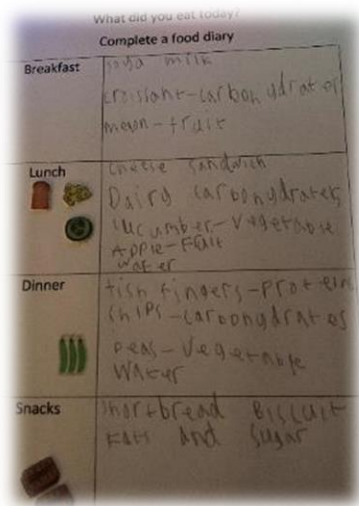 What did you eat today?
Complete a food diary
Breakfast
soya milk
croissant-carbohydrates
melon-fruit
Lunch
cheese sandwich
Dairy carbohydrates
cucumber-vegetable
Apple-Fruit
water
Dinner
fish fingers-protein
chips-carbohydrates
peas-vegetable
water
Snacks
shortbread Biscuit
Fats and sugar